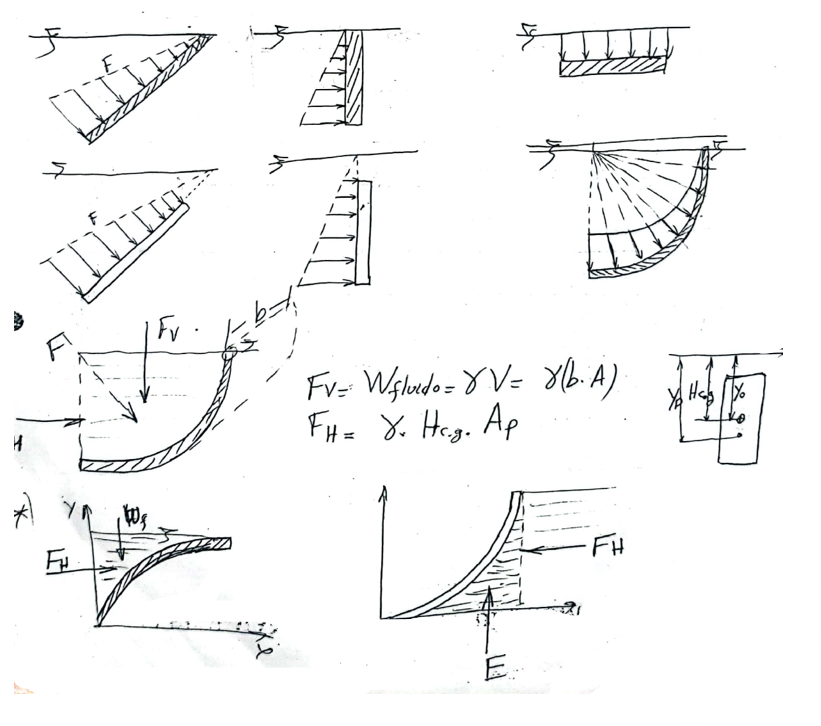 F
F
b
Fv
F
Fv = Wfluido = γV = γ(b.A)
H
FH = γ. Hc.g. Ap
Yp Hc.g Yo
*)
Y
FH
FH
x
E